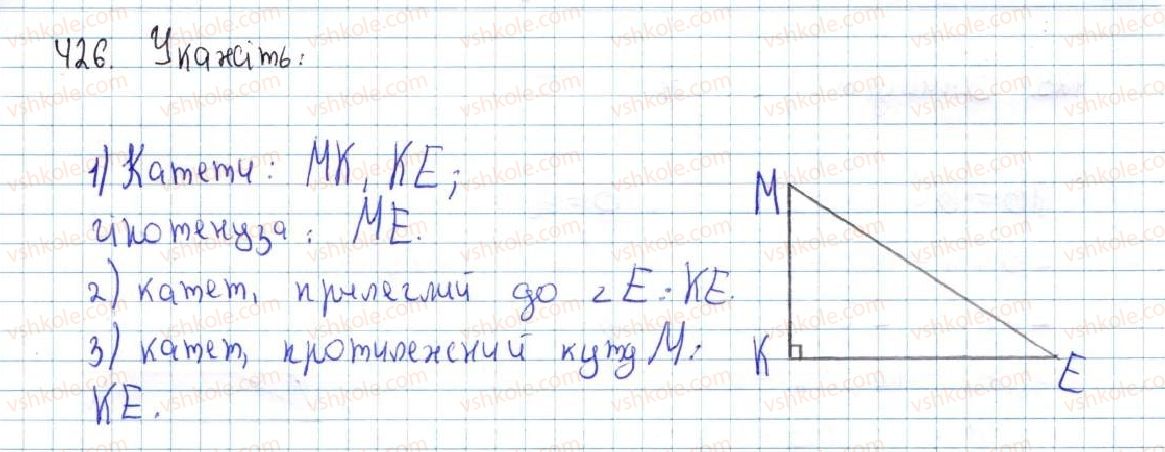 426. Укажіть:
1) Катети: МК, КЕ;
гіпотенуза: МЕ.
2) катет, прилеглий до ∠Е: КЕ.
3) катет, протилежний куту М:
КЕ.
М
К
Е